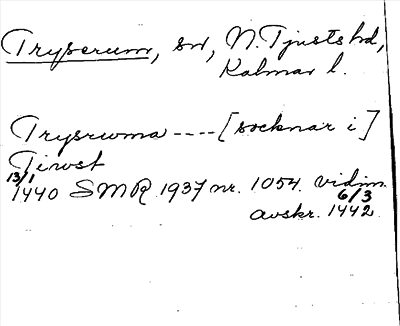 Tryserum, sn, N. Tjusts hd,
Kalmar l.
Trysrwma ---- [socknar i]
Tiwst
13/1 1440 SMR 1937 nr. 1054. vidim.
avskr. 6/3 1442.